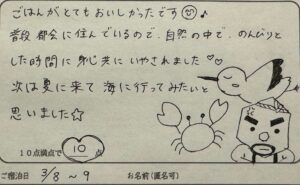 ごはんがとてもおいしかったです♪
普段都会に住んでいるので、自然の中で、のんびりと
した時間に身心共にいやされました♡♡
次は夏に来て海に行ってみたいと
思いました☆
10点満点で 10 点
ご宿泊日 3/8〜9 お名前(匿名可)